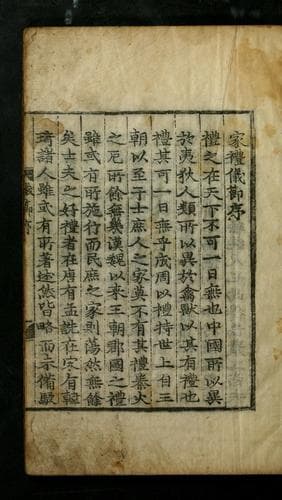 家禮儀節序
禮之在天下不可一日無也中國所以異
於夷狄人類所以異於禽獸以其有禮也
禮其可一日無乎成周以禮持世上自王
朝以至于士庶人之家莫不有其禮秦火
之厄所餘無幾漢魏以來王朝郡國之禮
雖或有所施行而民庶之家則蕩然無餘
矣士夫之好禮者在唐有孟詵在宋有韓
琦諸人雖或有所著述然皆略而未備駁